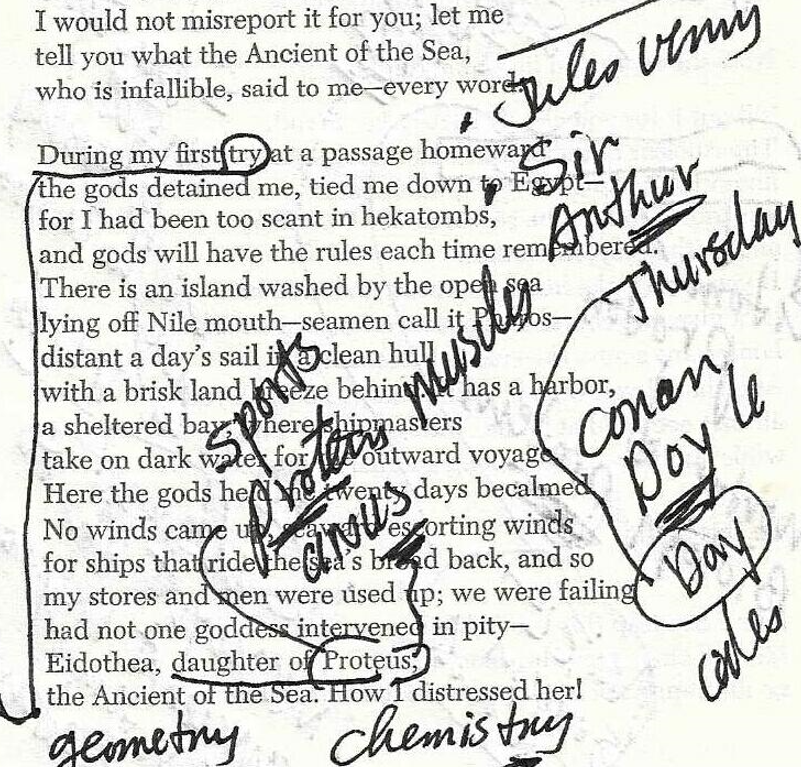 I would not misreport it for you; let me
tell you what the Ancient of the Sea,
who is infallible, said to me—every word.
Jules
During my first try at a passage homeward
the gods detained me, tied me down to Egypt—
for I had been too scant in hekatombs,
and gods will have the rules each time remembered.
There is an island washed by the open sea
lying off Nile mouth—seamen call it Pharos—
distant a day's sail in a clean hull
with a brisk land breeze behind. It has a harbor,
a sheltered bay, where shipmasters
take on dark water for the outward voyage.
Here the gods held me twenty days becalmed.
No winds came up, seaward escorting winds
for ships that ride the sea's broad back, and so
my stores and men were used up; we were failing
had not one goddess intervened in pity—
Eidothea, daughter of Proteus,
the Ancient of the Sea. How I distressed her!
Sir
Arthur
Thursday
Conan
Doyle
Day
codes
sports
muscles
Proteus
anus
geometry
chemistry